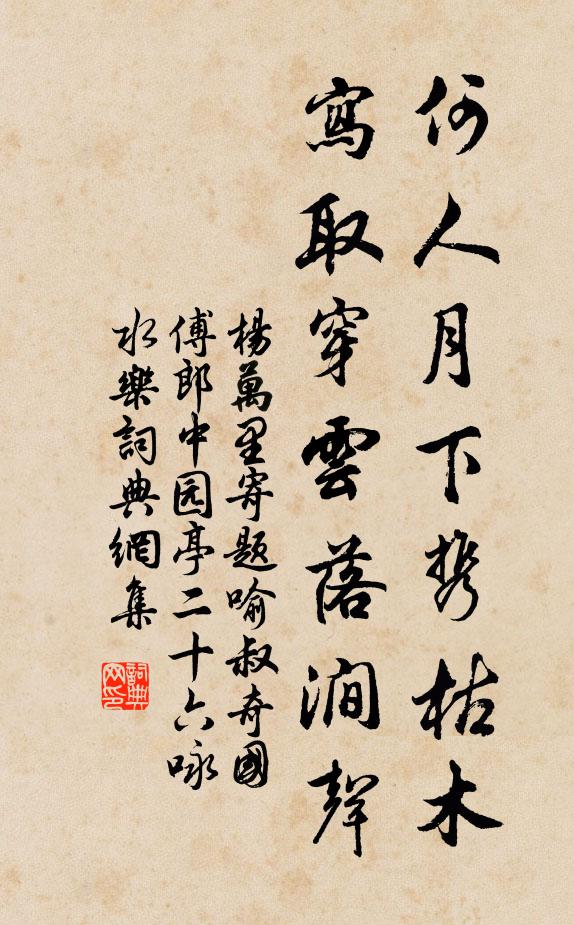 何人月下携枯木
寫取穿雲落澗聲
楊萬里寄题喻叔奇國
傅郎中园亭二十六咏
水樂詞典網集
詞典网印